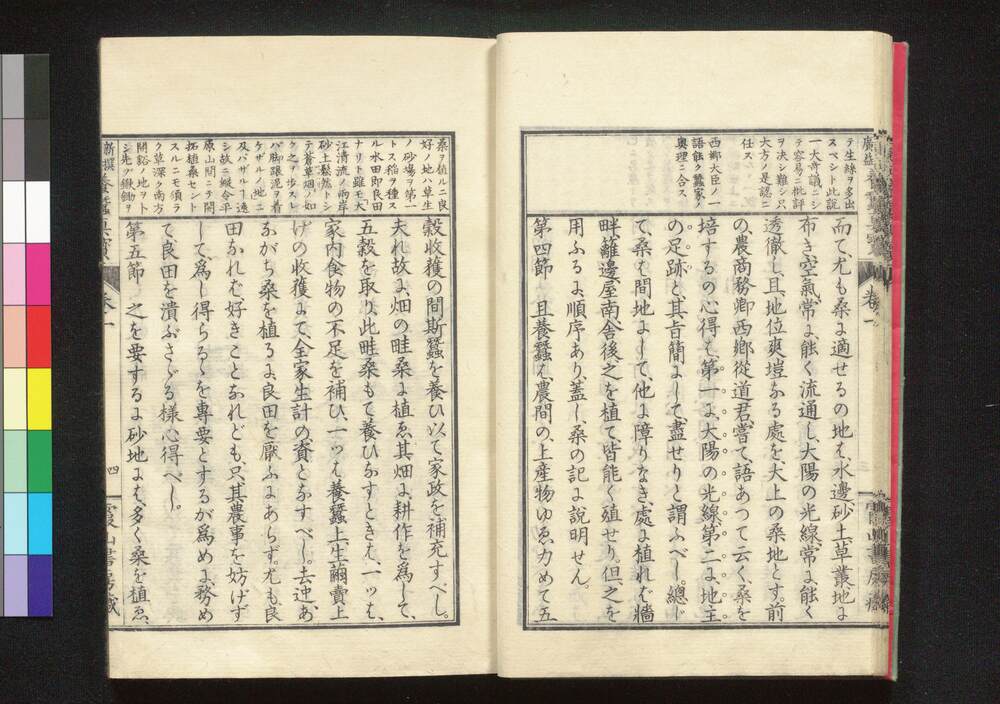 テ生絲ヲ多出
スベシト此説
一大奇議ニシ
テ容易ニ批評
ヲ決シ難シ只
大方ノ是認ニ
任ス
西郷大臣ノ一
語能ク蠶家ノ
奧理ニ合ス
而て、尤も桑よ適せるの地も、水邊砂土草叢地よ
布き、空氣常よ能く流通し、大陽の光線、常よ能く
透徹し、且地位爽塏ふる處を、大上の桑地とす。前
の農商務卿西郷從道君、嘗て語あつて云く、桑を
培するの心得も、第一よ大陽の光線、第二よ地主
の足跡と、其㫖簡よして、盡せりと謂ふべし。總じ
て、桑も間地よして、他よ障りなき處よ植れば、牆
畔籬邊、屋南舍後、之を植て、皆能く殖せり、但、之を
用ふるよ順序あり、蓋し桑の記よ說明せん。
第四節　且養蠶も、農間の上產物ゆゑ、力めて五
卷一
桑ヲ植ルニ良
好ノ地ハ草生
ノ砂場ヲ第一
トス稲ヲ種ス
ル水田即良田
ナリト雖モ大
江清流ノ兩岸
砂土鬆然トシ
テ蒼草烟ノ如
ク之ヲ歩スレ
バ脚跟泥ヲ着
ケザルノ地ニ
及バザルー遠
シ故ニ縦令平
原山間ニテ開
拓植桑セント
スルニモ須ラ
ク草深ク南方
開豁ノ地ヲト
シ先ヅ鍬鋤ヲ
穀收穫の間、斯蠶を養ひ、以て家政を補充すべし。
夫れ故よ、畑の畦桑よ植ゑ、其畑よ耕作を爲して、
五穀を取り、此畦桑もて、養ひふすときも、一ッも、
家内食物の不足を補ひ、一ッも、養蠶上、生繭賣上
けの收獲よて、全家生計の資とふすべし。去迚、あ
ふがち桑を植るよ、良田を厭ふよあらず。尤も良
田ふれむ、好きことふれども、只、其農事を妨げず
して、爲し得らるゝを專要とするが爲めよ、務め
て良田を潰ぶさゞる樣、心得べし。
第五節　之を要するよ、砂地よも、多く桑を植ゑ、
四